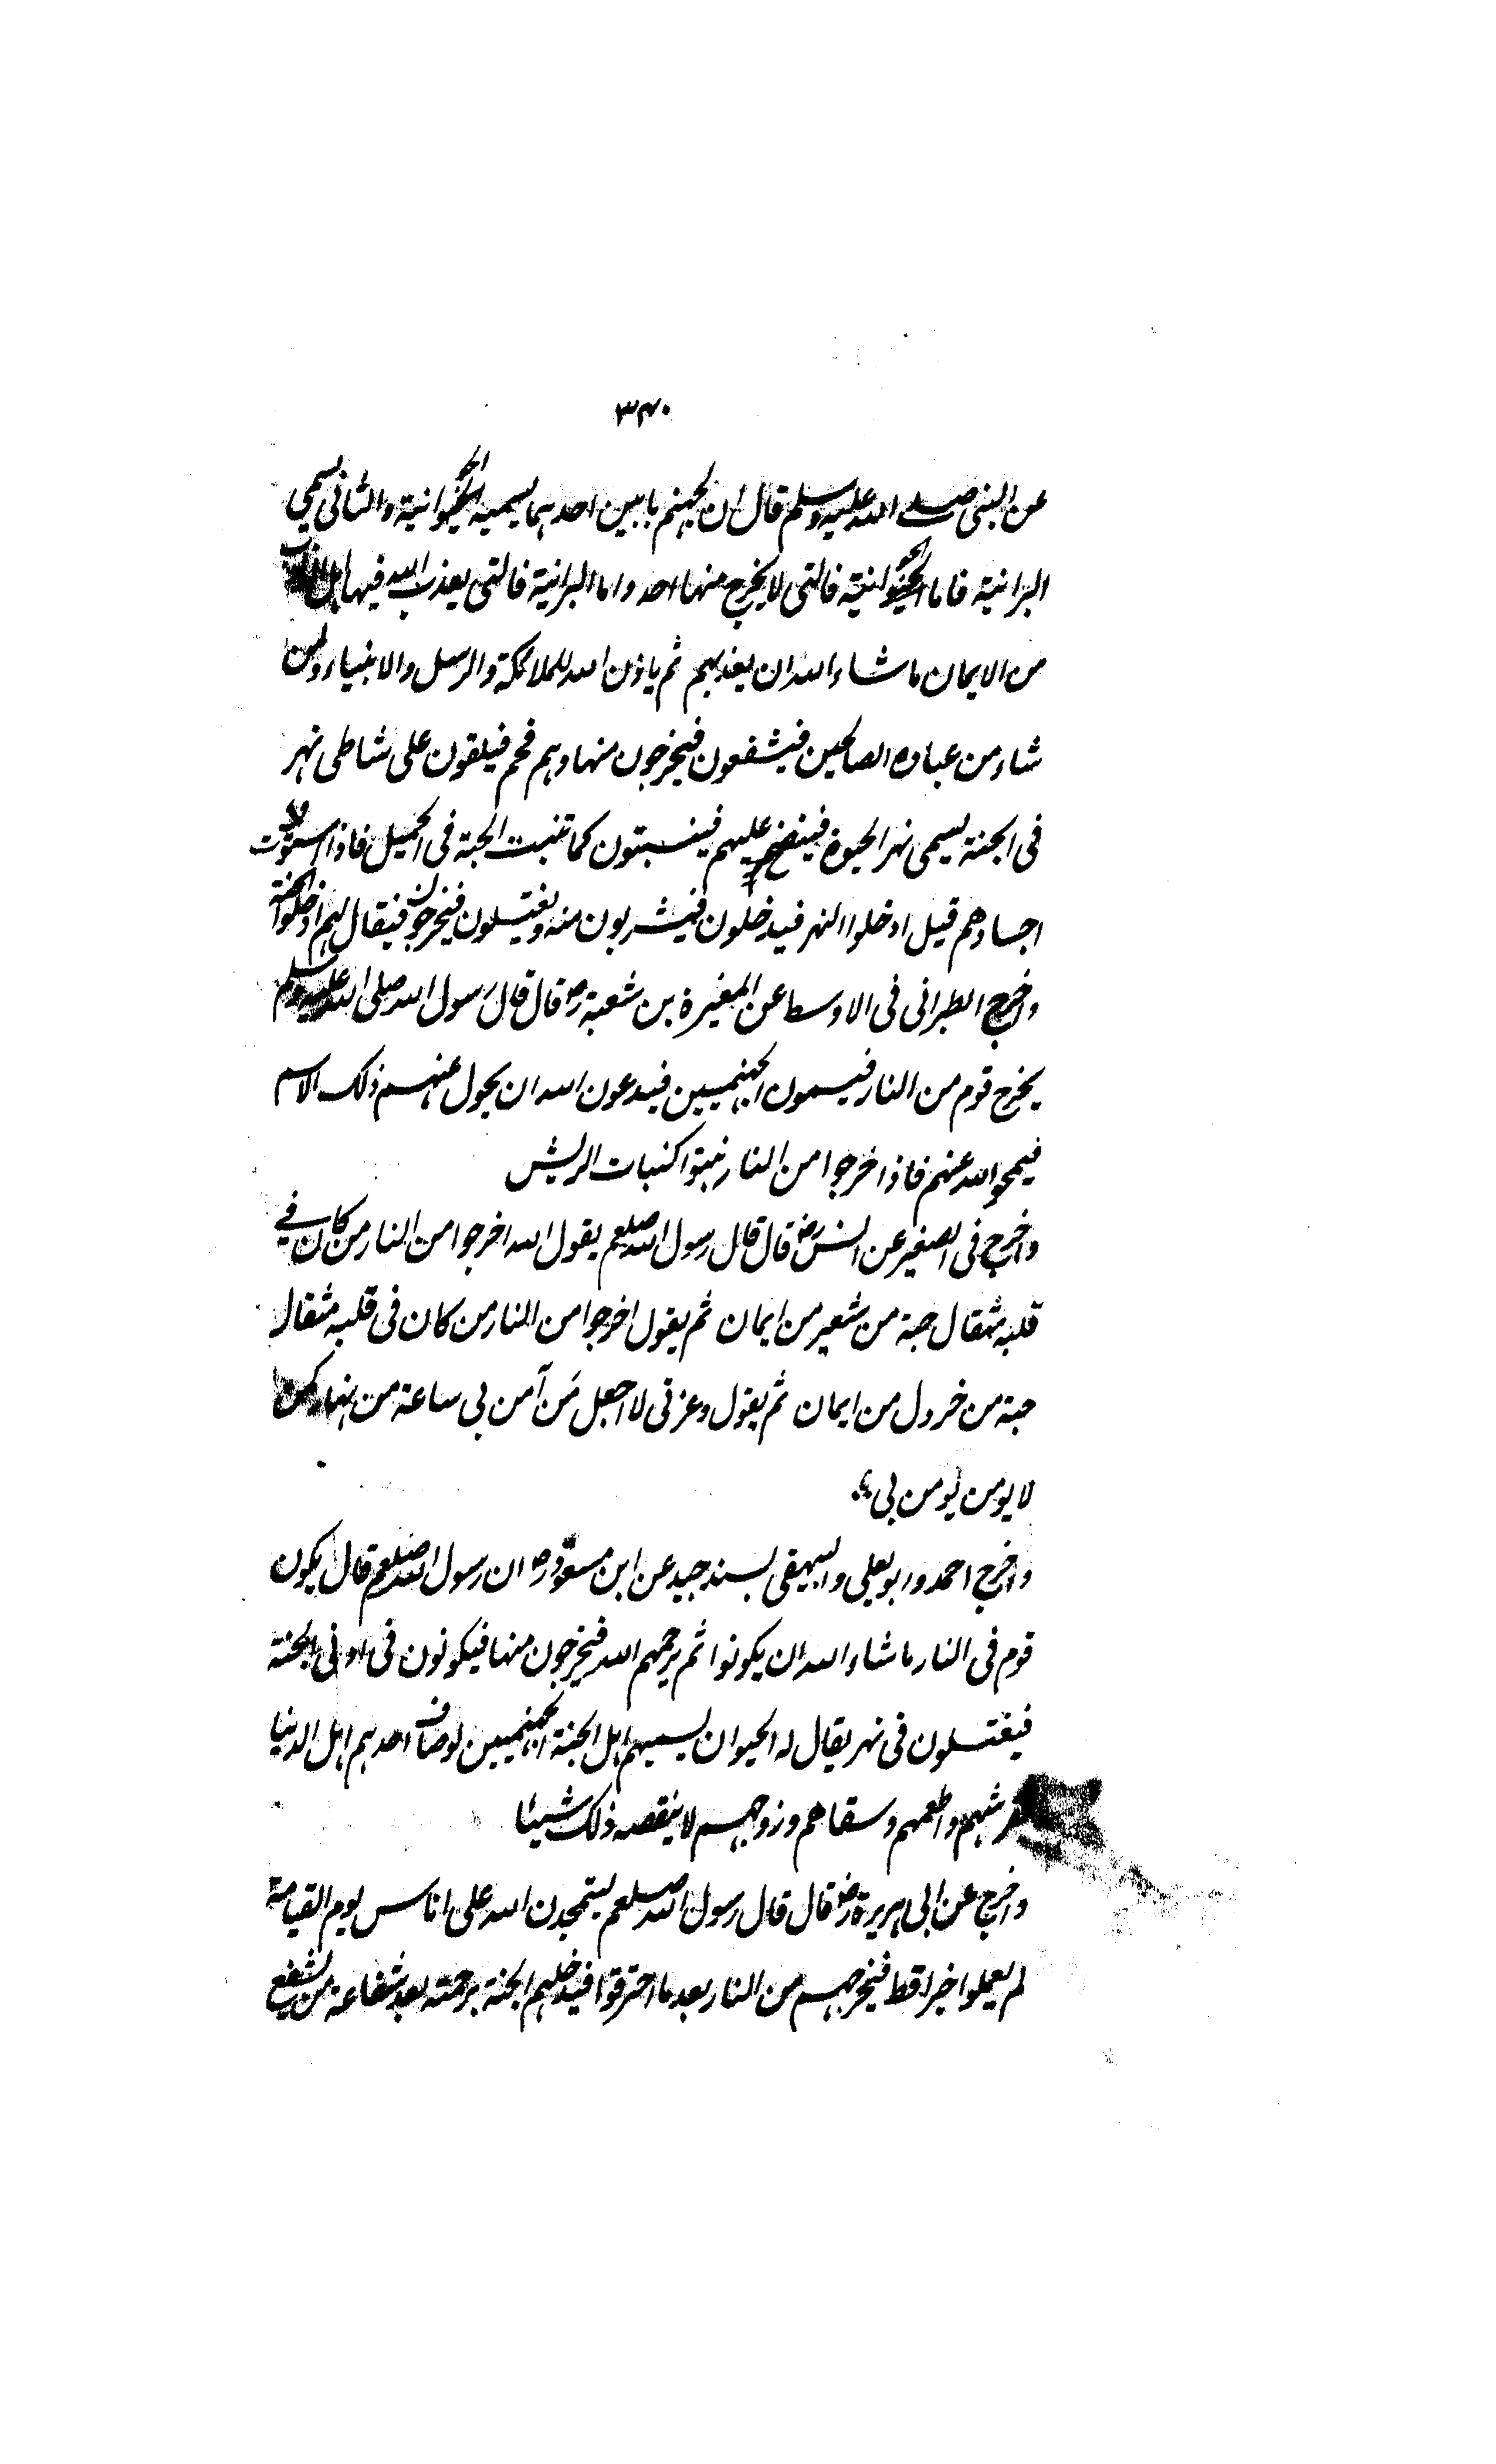 ٣٤٠
عن النبي صلے الله عليه وسلم قال ان لجهنم بابين احدهما يسميه الجوانية والثاني يسمى
البرانية فاما الجوانية فالتي لا يخرج منها احد واما البرانية فالتي يعذب الله فيها اهل
من الايمان ما شاء الله ان يعذبهم ثم ياذن الله للملائكة والرسل والانبياء ولمن
شاء من عباده الصالحين فيشفعون فيخرجون منها وهم فحم فيلقون على شاطى نهر
فى الجنة يسمى نهر الحيوة فينضح عليهم فينبتون كما تنبت الحبة فى الحميل فاذا استوت
اجسادهم قيل ادخلوا النهر فيدخلون فيشربون منه ويغتسلون فيخرجون فيقال لهم ادخلوا الجنة
واخرج الطبرانى فى الاوسط عن المغيرة بن شعبة رض قال قال رسول الله صلى الله عليه وسلم
يخرج قوم من النار فيسمون الجهنميين فيدعون الله ان يحول عنهم ذلك الاسم
فيمحو الله عنهم فاذا خرجوا من النار نبتوا كنبات الريش
واخرج فى الصغير عن انس رض قال قال رسول الله صلعم يقول الله اخرجوا من النار من كان في
قلبه مثقال حبة من شعير من ايمان ثم يقول اخرجوا من النار من كان فى قلبه مثقال
حبة من خردل من ايمان ثم يقول وعزتى لا اجعل من آمن بى ساعة من نهار كمن
لا يومن يومن بى
واخرج احمد وابو يعلى والبيهقى بسند جيد عن ابن مسعود رض ان رسول الله صلعم قال يكون
قوم فى النار ما شاء الله ان يكونوا ثم يرحمهم الله فيخرجون منها فيكونون فى ادنى الجنة
فيغتسلون فى نهر يقال له الحيوان يسميهم اهل الجنة الجهنميين لو ضاف احدهم اهل الدنيا
فرشهم واطعمهم وسقاهم وزوجهم لا ينقصه ذلك شيئا
واخرج عن ابى هريرة رض قال قال رسول الله صلعم ليتمجدن الله على اناس يوم القيامة
لم يعملوا خيرا قط فيخرجهم من النار بعد ما احترقوا فيدخلهم الجنة برحمته بعد شفاعة من يشفع